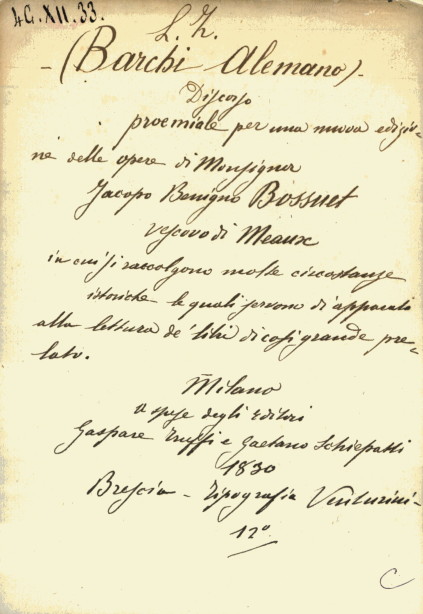 4G.XII.33.
L. Z.
- (Barchi Alemano) -
Discorso
proemiale per una nuova edizio-
ne delle opere di Monsignor
Jacopo Benigno Bossuet
vescovo di Meaux
in cui si raccolgono molte circostanze
istoriche le quali servono d'apparati
alla lettura de' libri di così grande pre-
lato.
Milano
a spese degli Editori
Gaspare Truffi e Gaetano Schiepatti
1830
Brescia - Tipografia Venturini -
12º
C